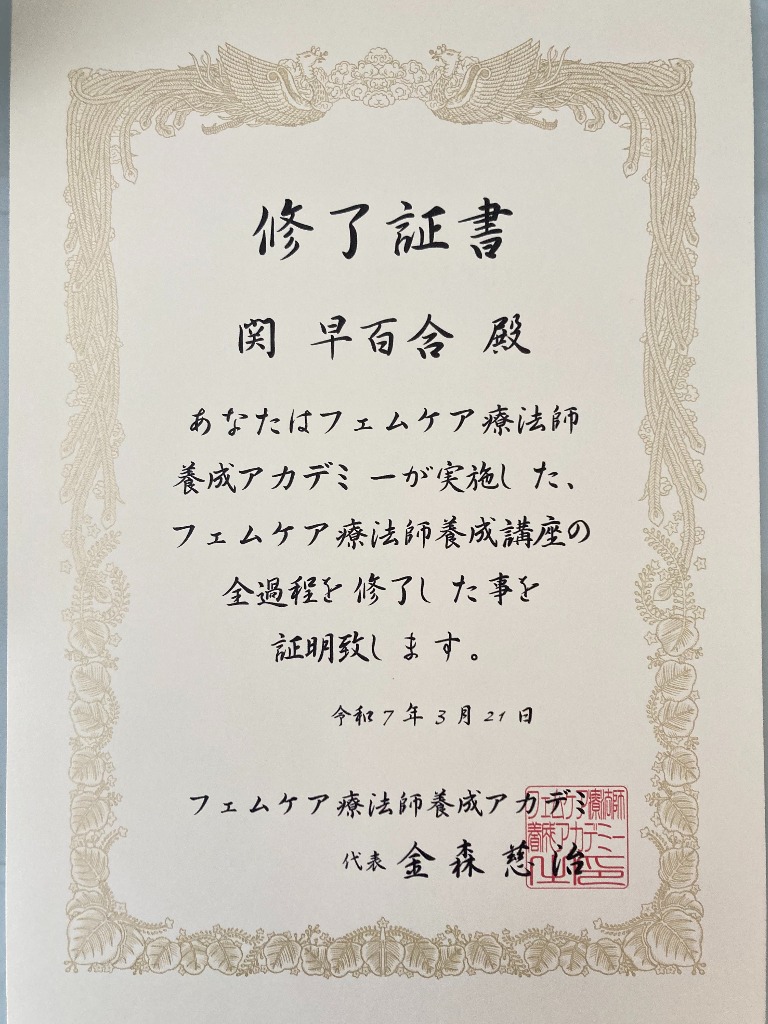 修了証書
関 早百合 殿
あなたはフェムケア療法師
養成アカデミーが実施した、
フェムケア療法師養成講座の
全過程を修了した事を
証明致します。
令和7年3月21日
フェムケア療法師養成アカデミー
代表 金森 慈治
フェムケア療法師
養成アカデミー
之印